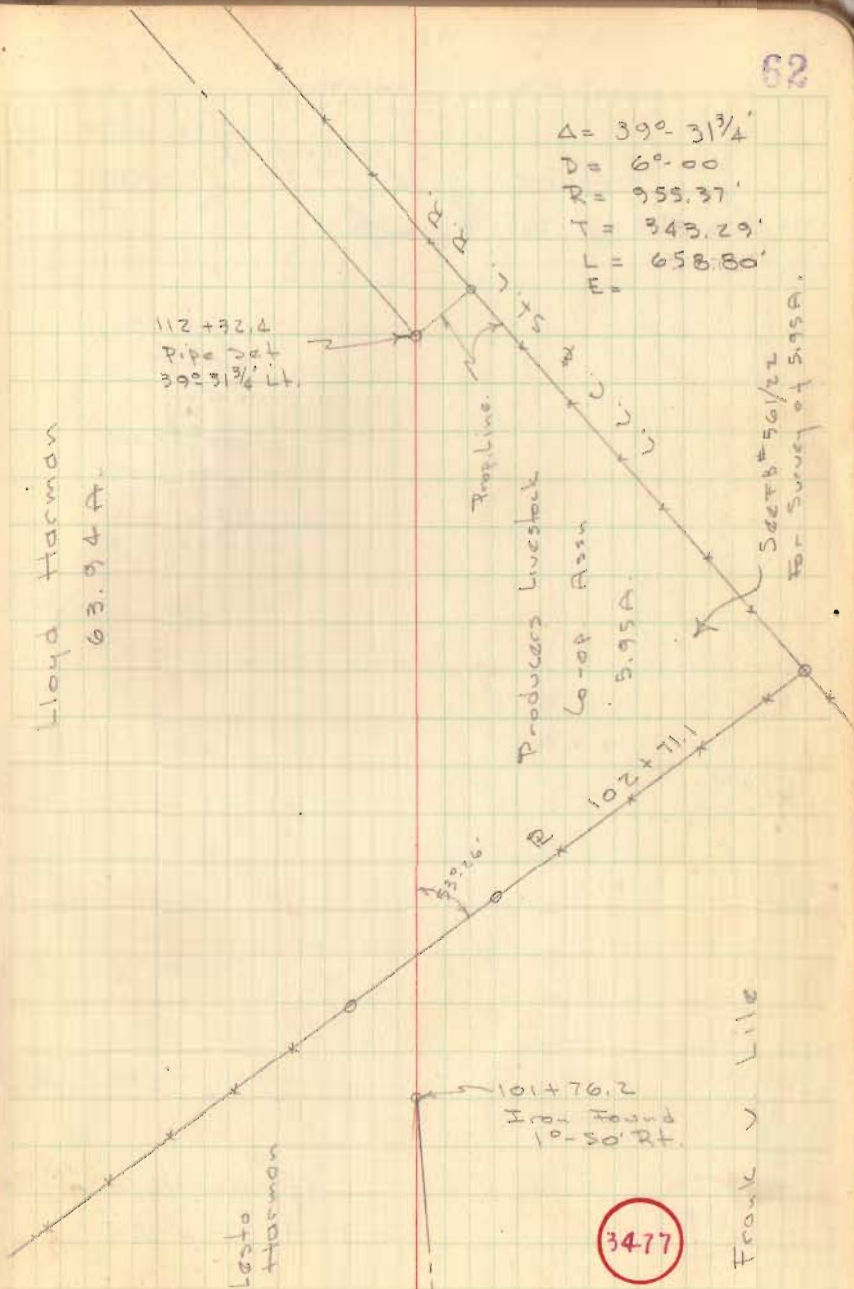 62
Δ = 39°-31 3/4'
D = 6°-00
R = 955.37'
T = 343.29'
L = 658.80'
E =
112 + 32.4
Pipe Set
39°-31 3/4' Lt.
Lloyd Harmon
63.94 A.
Prop. Line.
Producers Livestock
Co-op Assn
5.95 A.
See FB# 561/22
For Survey of 5.95 A.
102 + 71.1
53°-26'
101 + 76.2
Iron Found
1°-50' Rt.
Lesta
Harmon
Frank V. Lile
3477